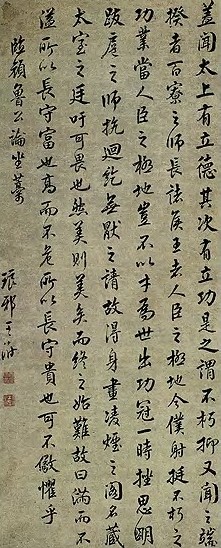 蓋聞太上有立德其次有立功是之謂不朽抑又聞之端
揆者百寮之師長諸侯王者人臣之極地今僕射挺不朽之
功業當人臣之極地豈不以才為世出功冠一時挫思明
跋扈之師抗迴紇無厭之請故得身畫凌煙之閣名藏
太室之廷吁可畏也然美則美矣而終之始難故曰滿而不
溢所以長守富也高而不危所以長守貴也可不儆懼乎
臨顏魯公論坐藁
琅邪王澍